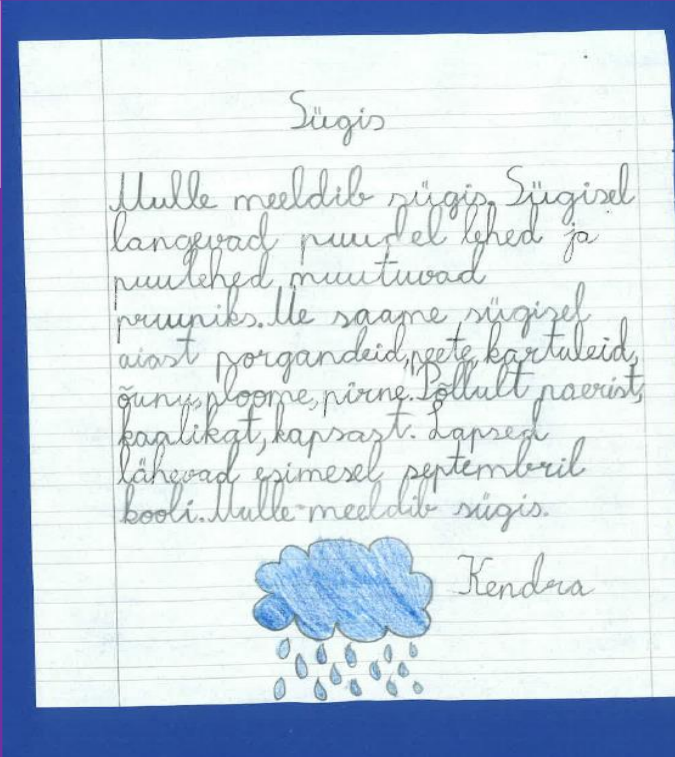 Sügis
Mulle meeldib sügis. Sügisel
langevad puudel lehed ja
puulehed muutuvad
pruuniks. Me saame sügisel
aiast porgandeid, peete, kartuleid,
õunu, ploome, pirne. Põllult naerist,
kaalikat, kapsast. Lapsed
lähevad esimesel septembril
kooli. Mulle meeldib sügis.
Kendra